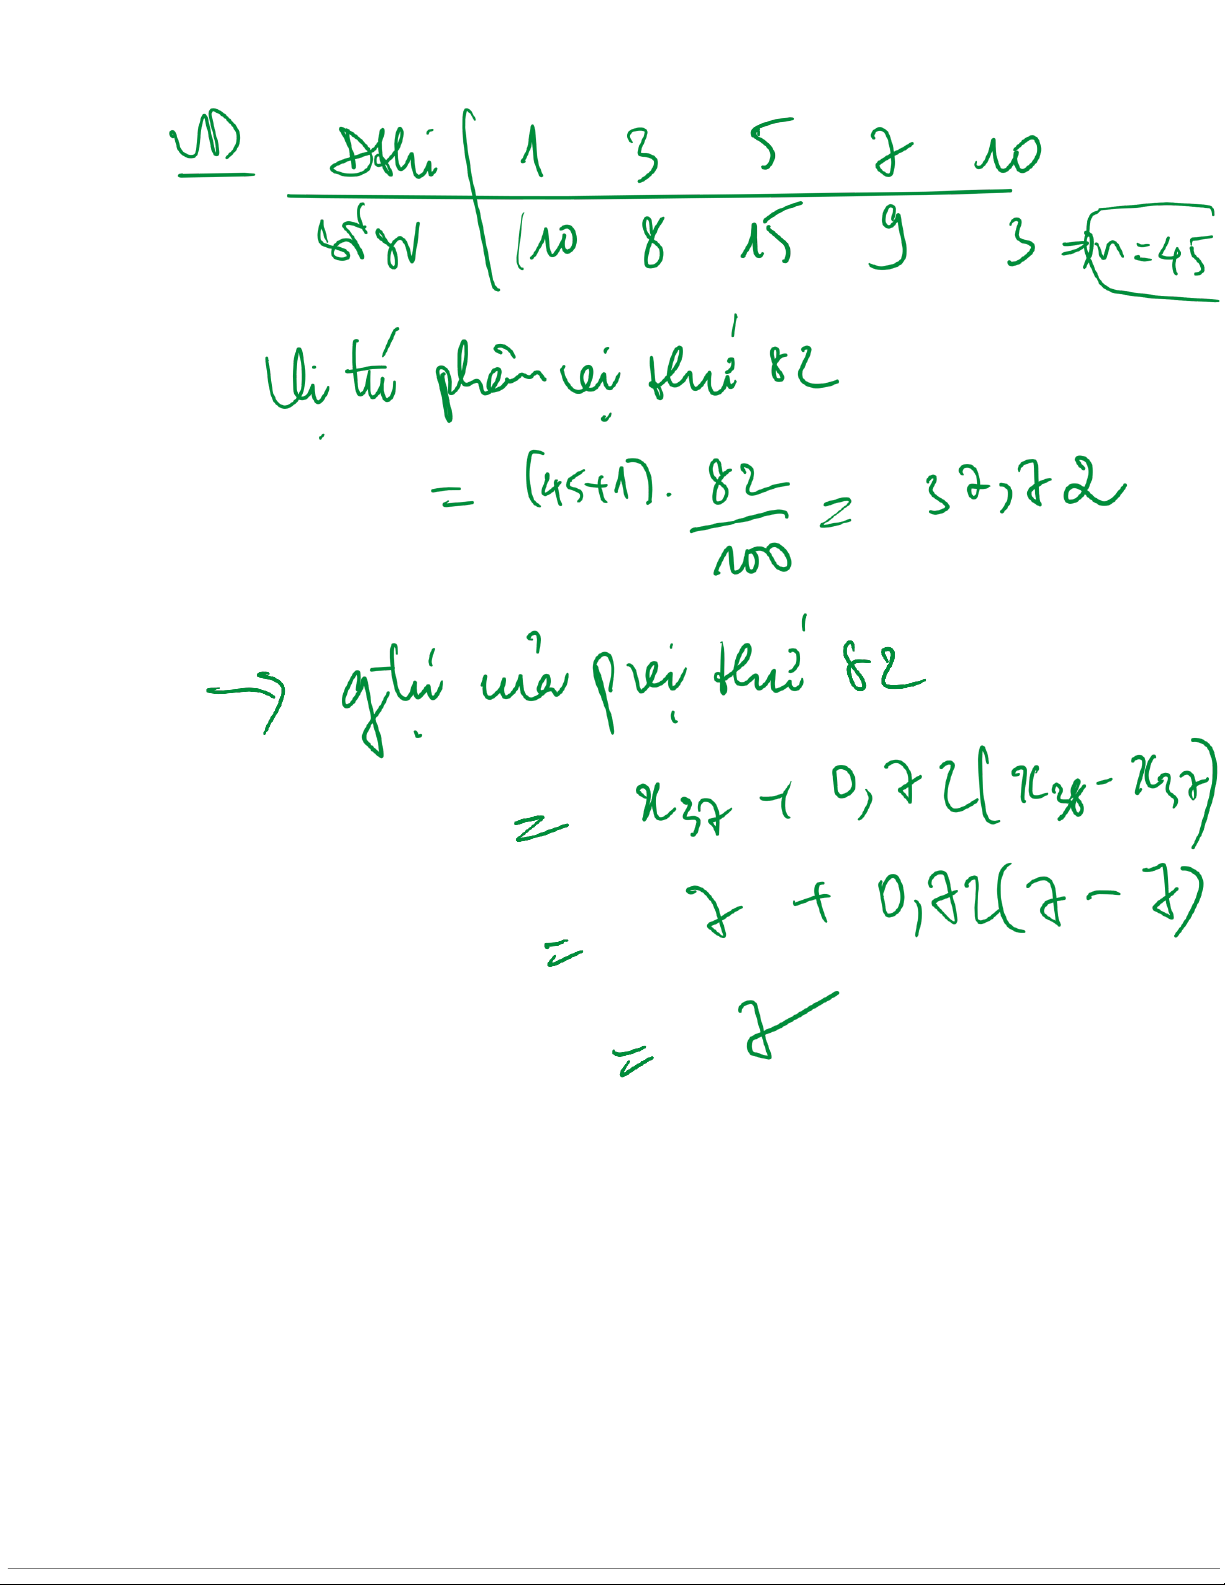 VD Đthi 1 3 5 7 10
số sv 10 8 15 9 3 => n=45
Vị trí phân vị thứ 82
= (45+1). 82/100 = 37,72
→ gtrị của pvị thứ 82
= x37 + 0,72(x38 - x37)
= 7 + 0,72(7 - 7)
= 7